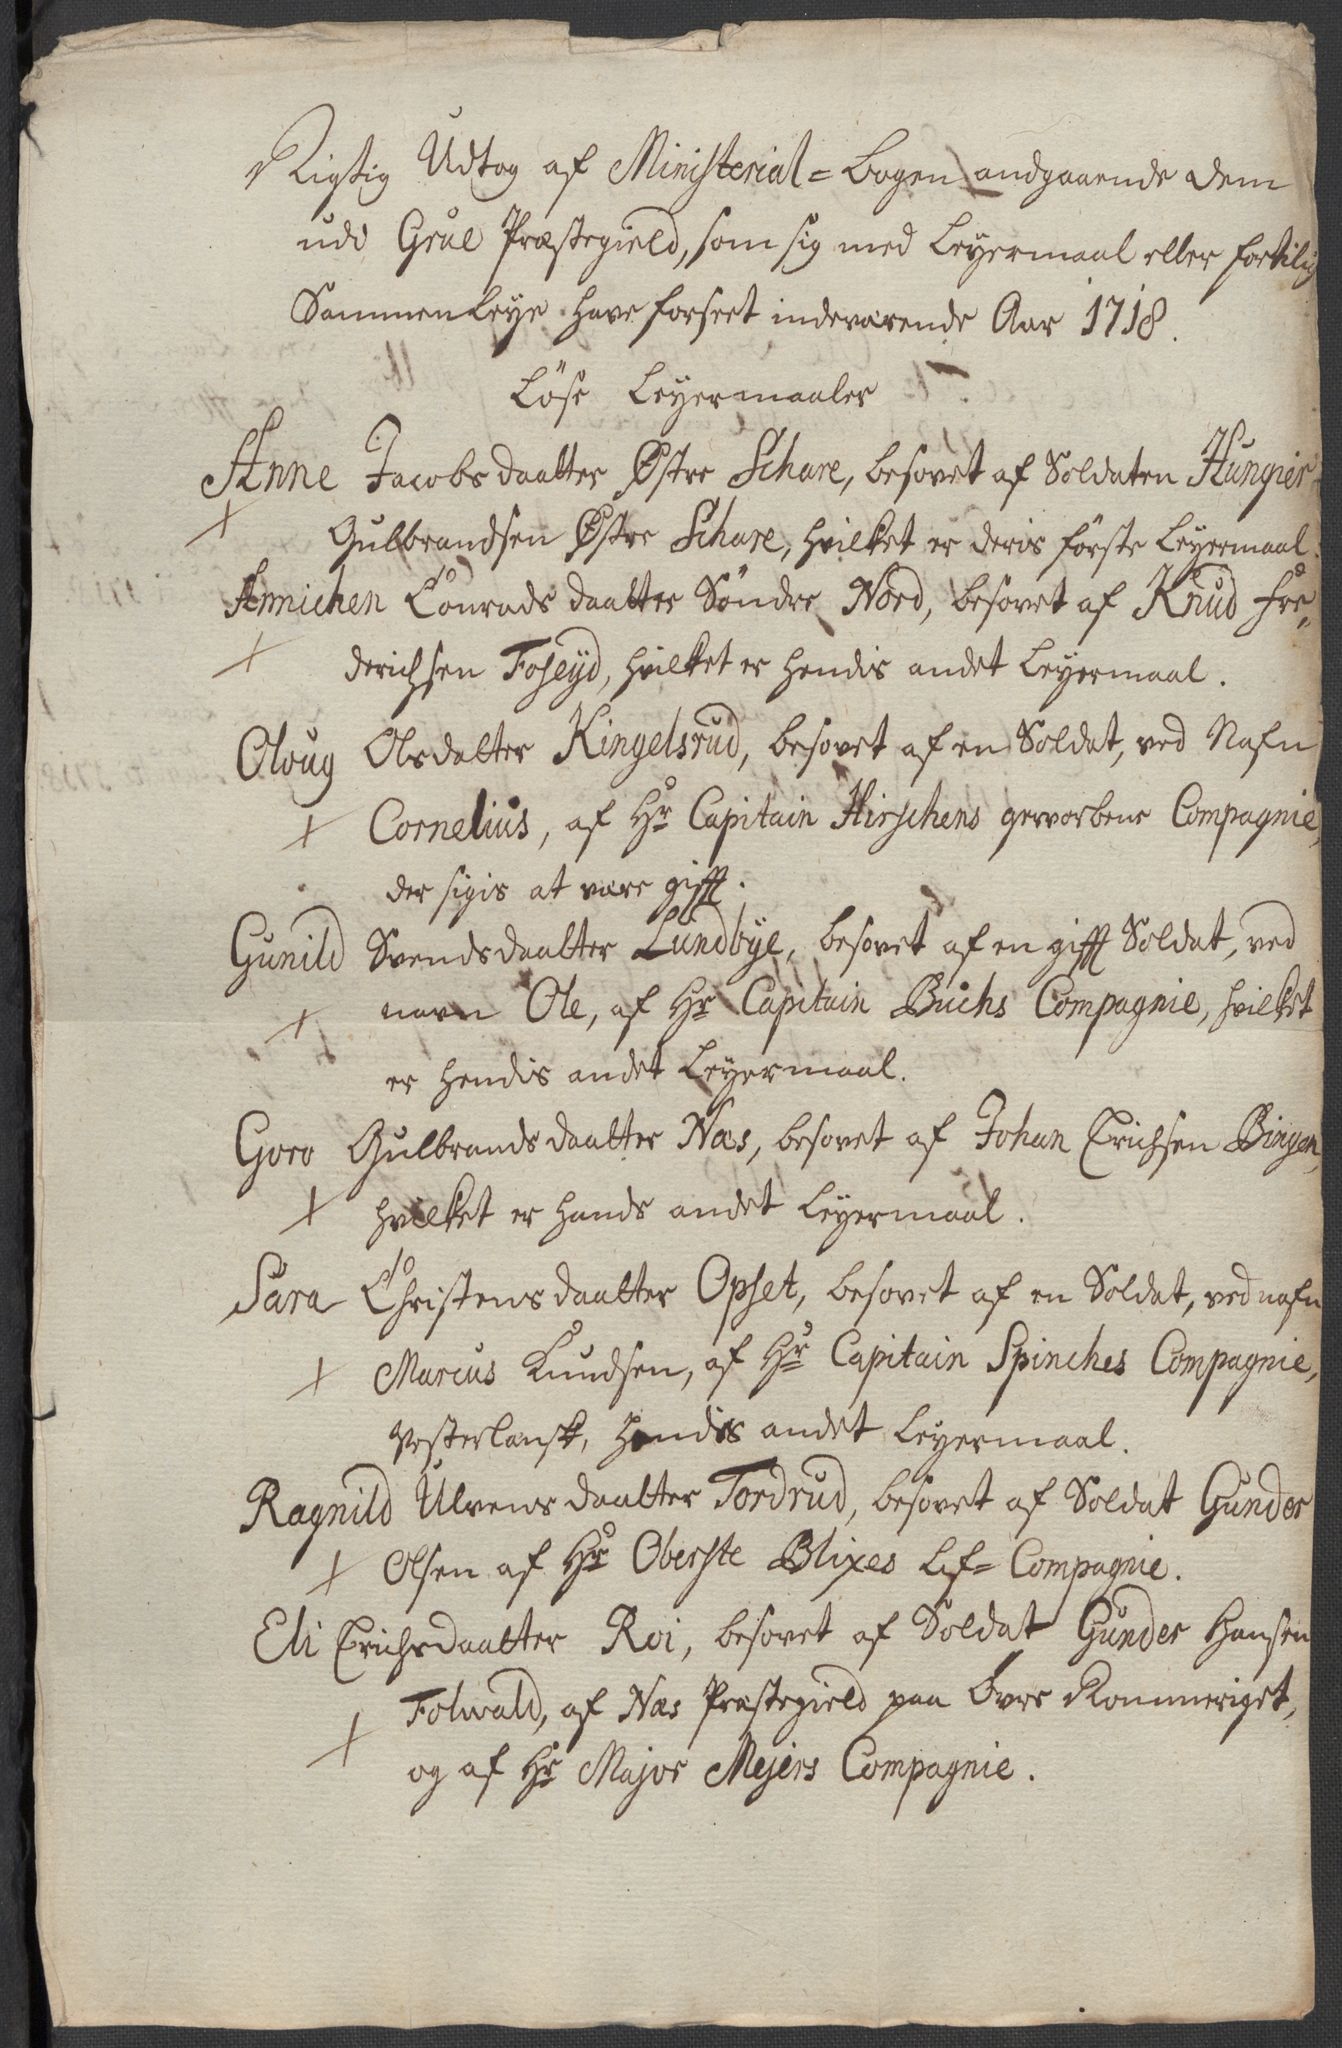 Rigtig Udtog af Ministerial=bogen andgaaende dem
udi Grue Præstegield, som sig med Leyermaal eller fortilig
Sammenleye have forseet indeværende Aar 1718.
Löse Leyermaaler
Anne Jacobsdaatter Østre Schare, besovet af Soldaten Hungier
Gulbrandsen Østre Schare, hvilket er deris förste Leyermaal.
Annichen Conradsdaatter Söndre Nord, besovet af Knud Fre„
derichsen Foseyd, hvilket er hendis andet Leyermaal.
Oloug Olsdatter Kingelsrud, besovet af en Soldat, ved Nafn
Cornelius, af Hr Capitain Hirschens gevorbene Compagnie,
der sigis at være gifft.
Gunild Svendsdaatter Lundbye, besovet af en gifft Soldat, ved
navn Ole, af Hr Capitain Buchs Compagnie, hvilket
er hendis andet Leyermaal.
Goro Gulbrandsdaatter Næs, besovet af Johan Erichsen Bingen,
hvilket er hands andet Leyermaal.
Sara Christensdaatter Opset, besovet af en Soldat, ved nafn
Marcus Knudsen, af Hr Capitain Spinches Compagnie,
Vesterlansk, hendis andet Leyermaal.
Ragnild Ulvensdaatter Tordrud, besovet af Soldat Gunder
Olsen af Hr Oberste Blixes Lif=Compagnie.
Eli Erichsdaatter Roi, besovet af Soldat Gunder Hansen
Folwald, af Næs Præstegield paa Øvre Rommeriget,
og af Hr Major Mejers Compagnie.